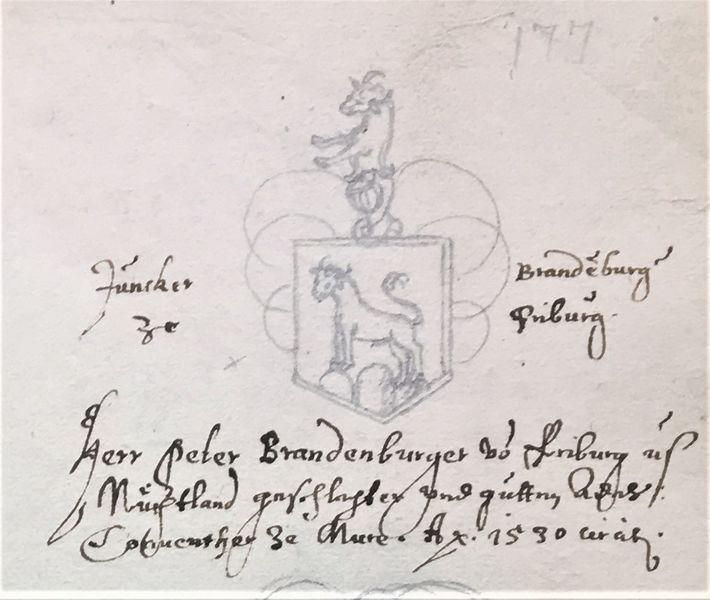 177
Juncker Brandeburg
ze Friburg.
Herr Peter Brandenburger vō Friburg us
Nüchtland geschlechter vnd gutten Adels.
Conuenther ze Mure. Ax. 1530